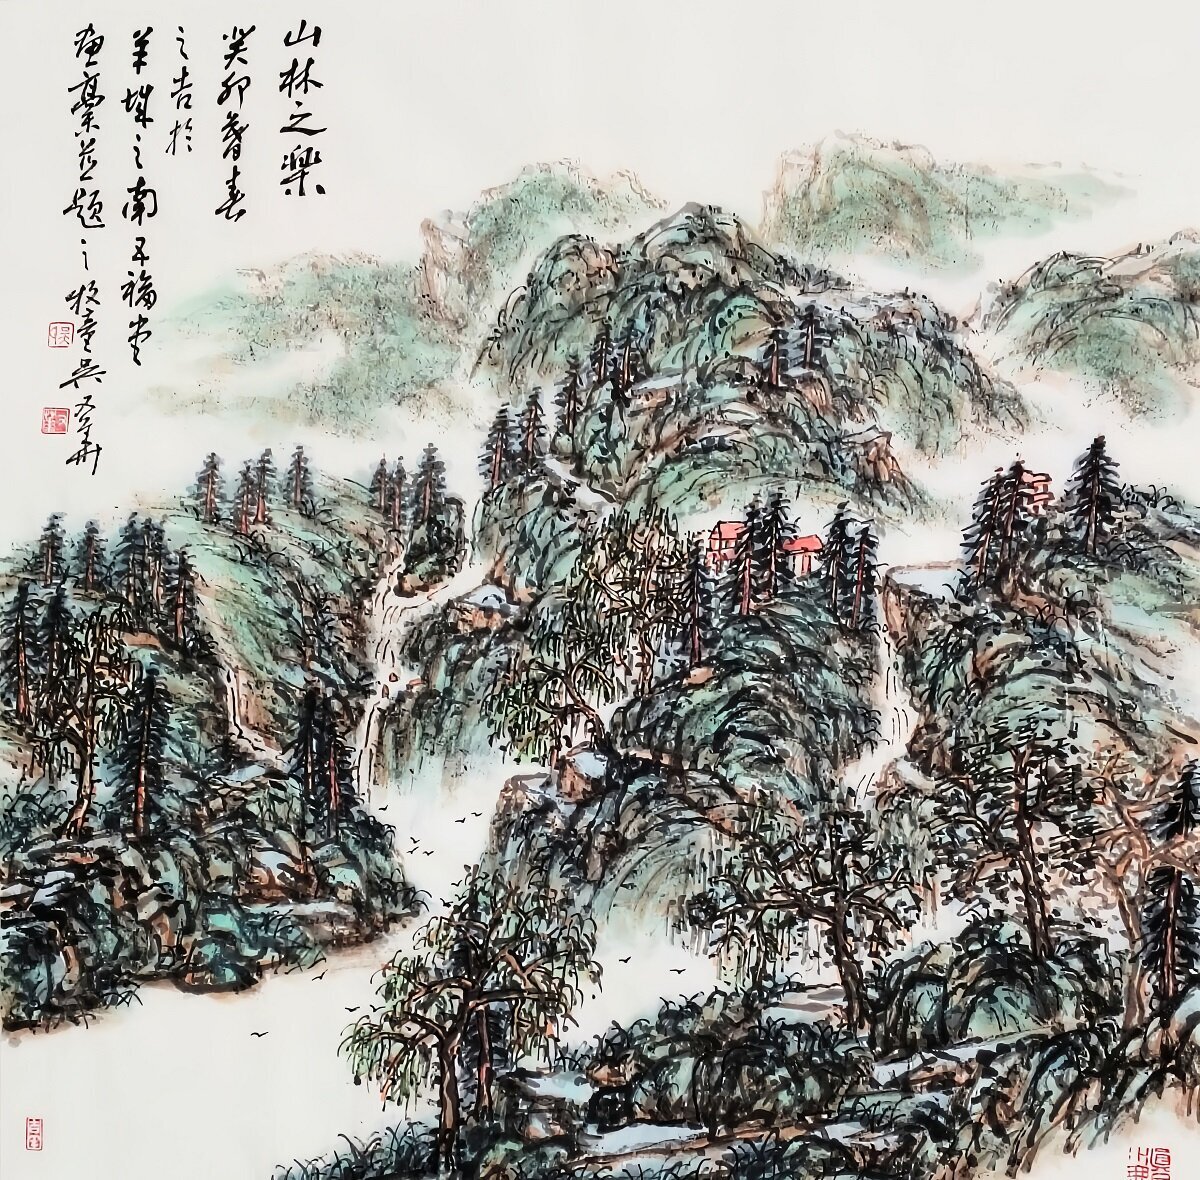 山林之樂
癸卯暮春
之吉於
羊城之南五福堂
畫稾並題之牧童吳友華